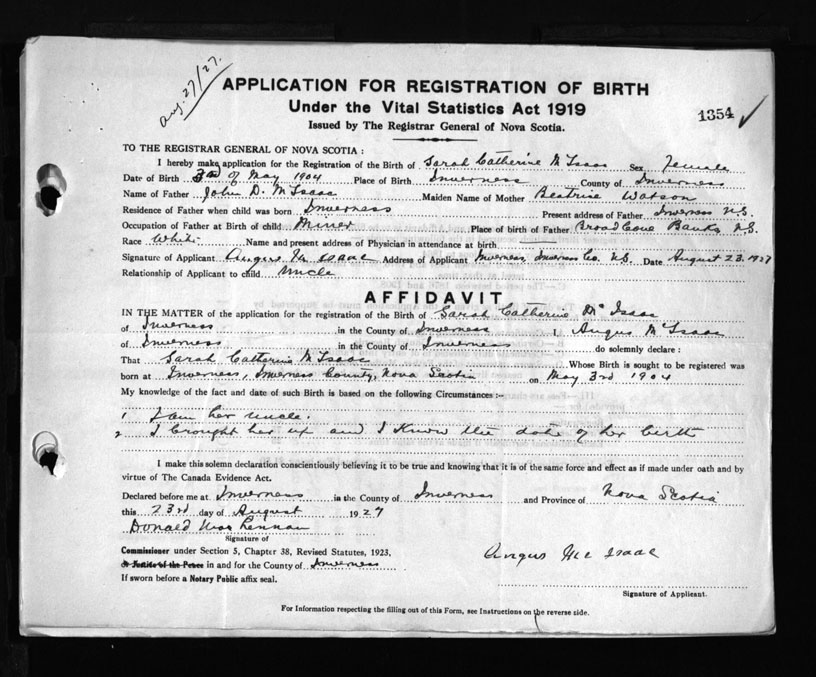 Aug. 27/27.
APPLICATION FOR REGISTRATION OF BIRTH
Under the Vital Statistics Act 1919
Issued by The Registrar General of Nova Scotia.
1354 ✓
TO THE REGISTRAR GENERAL OF NOVA SCOTIA :
I hereby make application for the Registration of the Birth of Sarah Catherine McIsaac Sex Female
Date of Birth 3rd of May 1904 Place of Birth Inverness County of Inverness
Name of Father John D. McIsaac Maiden Name of Mother Beatrice Watson
Residence of Father when child was born Inverness Present address of Father Inverness N.S.
Occupation of Father at Birth of child Miner Place of birth of Father Broad Cove Banks N.S.
Race White Name and present address of Physician in attendance at birth
Signature of Applicant Angus McIsaac Address of Applicant Inverness, Inverness Co. N.S. Date August 23. 1927
Relationship of Applicant to child Uncle
AFFIDAVIT
IN THE MATTER of the application for the registration of the Birth of Sarah Catherine McIsaac
of Inverness in the County of Inverness I, Angus McIsaac
of Inverness in the County of Inverness do solemnly declare :
That Sarah Catherine McIsaac Whose Birth is sought to be registered was
born at Inverness, Inverness County, Nova Scotia on May 3rd 1904
My knowledge of the fact and date of such Birth is based on the following Circumstances :—
1 I am her uncle.
2 I brought her up and I know the date of her birth
I make this solemn declaration conscientiously believing it to be true and knowing that it is of the same force and effect as if made under oath and by
virtue of The Canada Evidence Act.
Declared before me at Inverness in the County of Inverness and Province of Nova Scotia
this 23rd day of August 1927
Donald MacLennan
Signature of
Commissioner under Section 5, Chapter 38, Revised Statutes, 1923,
or Justice of the Peace in and for the County of Inverness
If sworn before a Notary Public affix seal.
Angus McIsaac
Signature of Applicant.
For Information respecting the filling out of this Form, see Instructions on the reverse side.